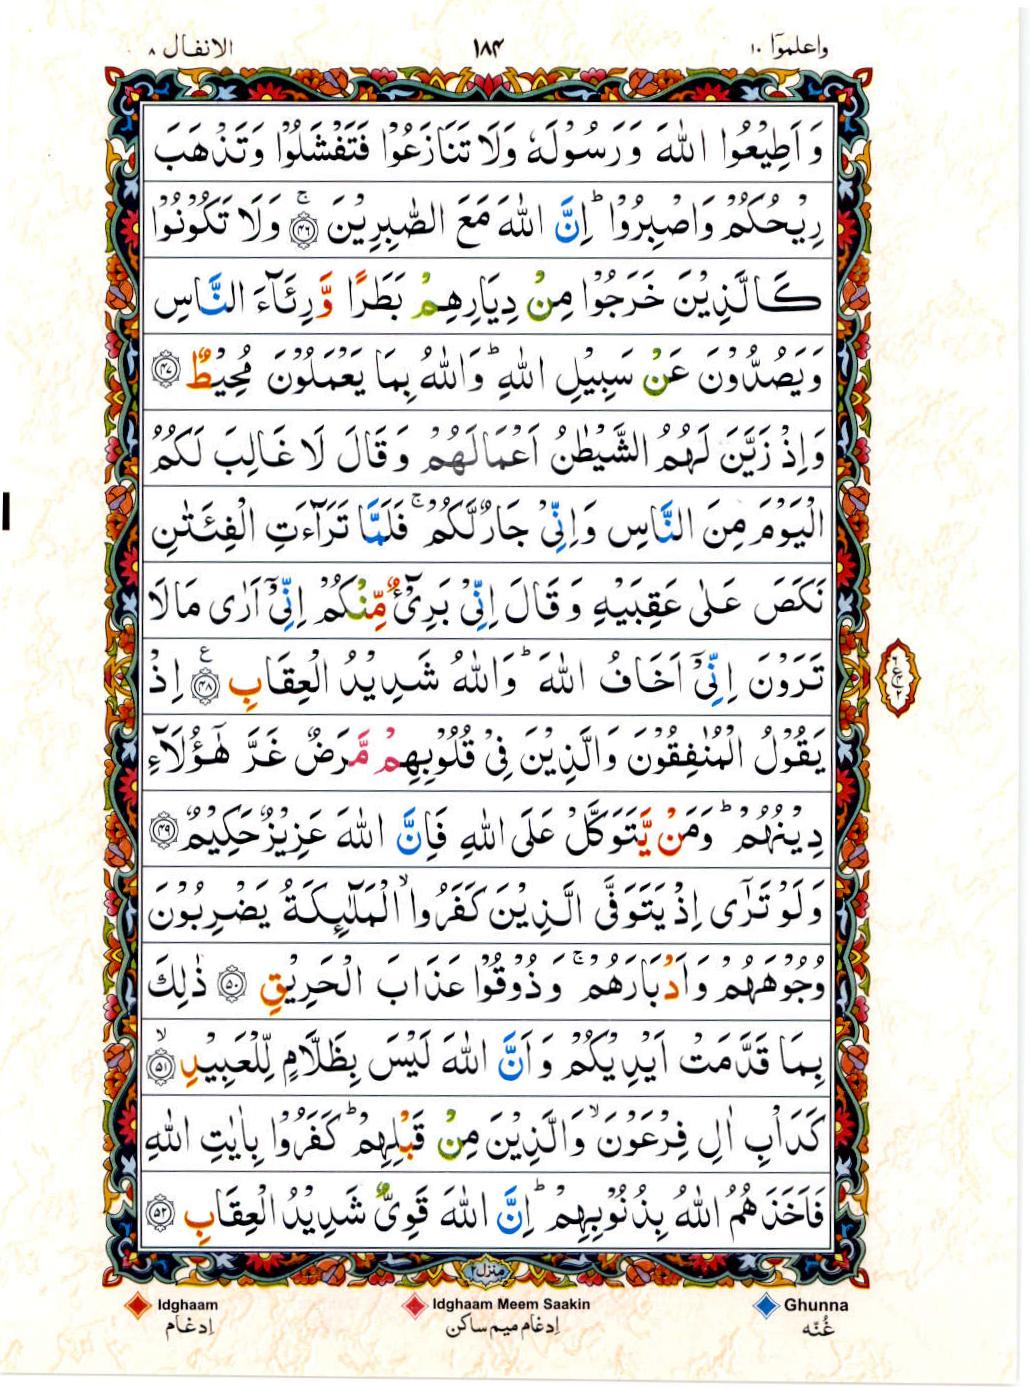 واعلموٓا ١٠ ١٨۴ الانفال ٨
وَاَطِيْعُوا اللّٰهَ وَرَسُوْلَهٗ وَلَا تَنَازَعُوْا فَتَفْشَلُوْا وَتَذْهَبَ
رِيْحُكُمْ وَاصْبِرُوْا ؕ اِنَّ اللّٰهَ مَعَ الصّٰبِرِيْنَ ۚ ﴿۴۶﴾ وَلَا تَكُوْنُوْا
كَالَّذِيْنَ خَرَجُوْا مِنْ دِيَارِهِمْ بَطَرًا وَّرِئَآءَ النَّاسِ
وَيَصُدُّوْنَ عَنْ سَبِيْلِ اللّٰهِ ؕ وَاللّٰهُ بِمَا يَعْمَلُوْنَ مُحِيْطٌ ﴿۴۷﴾
وَاِذْ زَيَّنَ لَهُمُ الشَّيْطٰنُ اَعْمَالَهُمْ وَقَالَ لَا غَالِبَ لَكُمُ
الْيَوْمَ مِنَ النَّاسِ وَاِنِّيْ جَارٌ لَّكُمْ ۚ فَلَمَّا تَرَآءَتِ الْفِئَتٰنِ
نَكَصَ عَلٰى عَقِبَيْهِ وَقَالَ اِنِّيْ بَرِيْٓءٌ مِّنْكُمْ اِنِّيْٓ اَرٰى مَا لَا
تَرَوْنَ اِنِّيْٓ اَخَافُ اللّٰهَ ؕ وَاللّٰهُ شَدِيْدُ الْعِقَابِ ﴿۴۸﴾ ع اِذْ
يَقُوْلُ الْمُنٰفِقُوْنَ وَالَّذِيْنَ فِيْ قُلُوْبِهِمْ مَّرَضٌ غَرَّ هٰٓؤُلَآءِ
دِيْنُهُمْ ؕ وَمَنْ يَّتَوَكَّلْ عَلَى اللّٰهِ فَاِنَّ اللّٰهَ عَزِيْزٌ حَكِيْمٌ ﴿۴۹﴾
وَلَوْ تَرٰٓى اِذْ يَتَوَفَّى الَّذِيْنَ كَفَرُوا ۙ الْمَلٰٓئِكَةُ يَضْرِبُوْنَ
وُجُوْهَهُمْ وَاَدْبَارَهُمْ ۚ وَذُوْقُوْا عَذَابَ الْحَرِيْقِ ﴿۵۰﴾ ذٰلِكَ
بِمَا قَدَّمَتْ اَيْدِيْكُمْ وَاَنَّ اللّٰهَ لَيْسَ بِظَلَّامٍ لِّلْعَبِيْدِ ۙ ﴿۵۱﴾
كَدَاْبِ اٰلِ فِرْعَوْنَ ۙ وَالَّذِيْنَ مِنْ قَبْلِهِمْ ؕ كَفَرُوْا بِاٰيٰتِ اللّٰهِ
فَاَخَذَهُمُ اللّٰهُ بِذُنُوْبِهِمْ ؕ اِنَّ اللّٰهَ قَوِيٌّ شَدِيْدُ الْعِقَابِ ﴿۵۲﴾
منزل ٢
Idghaam Idghaam Meem Saakin Ghunna
اِدغام اِدغام میم ساکن غُنّه